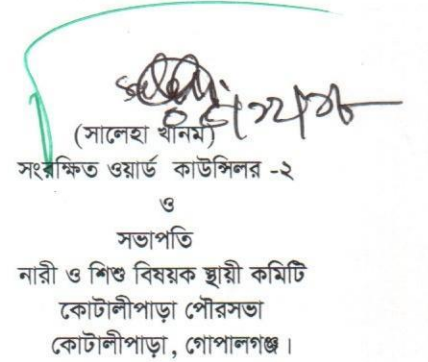 (সালেহা খানম)
সংরক্ষিত ওয়ার্ড কাউন্সিলর -২
ও
সভাপতি
নারী ও শিশু বিষয়ক স্থায়ী কমিটি
কোটালীপাড়া পৌরসভা
কোটালীপাড়া, গোপালগঞ্জ।